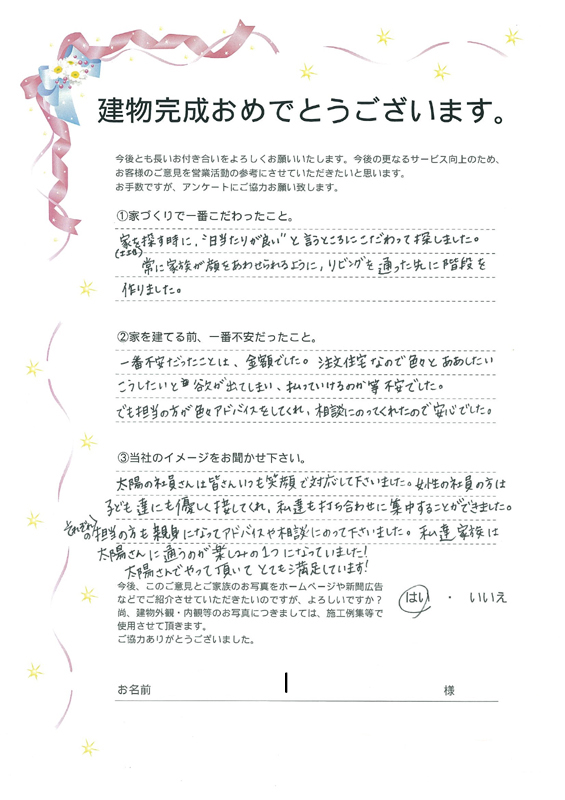 建物完成おめでとうございます。
今後とも長いお付き合いをよろしくお願いいたします。今後の更なるサービス向上のため、
お客様のご意見を営業活動の参考にさせていただきたいと思います。
お手数ですが、アンケートにご協力お願い致します。
①家づくりで一番こだわったこと。
家を探す時に、"日当たりが良い"と言うところにこだわって探しました。
(土地)
常に家族が顔をあわせられるように、リビングを通った先に階段を
作りました。
②家を建てる前、一番不安だったこと。
一番不安だったことは、金額でした。注文住宅なので色々とああしたい
こうしたいと欲が出てしまい、払っていけるのか等不安でした。
でも担当の方が色々アドバイスをしてくれ、相談にのってくれたので安心でした。
③当社のイメージをお聞かせ下さい。
太陽の社員さんは皆さんいつも笑顔で対応して下さいました。女性の社員の方は
子ども達にも優しく接してくれ、私達も打ち合わせに集中することができました。
それぞれの担当の方も親身になってアドバイスや相談にのって下さいました。私達家族は
太陽さんに通うのが楽しみの1つになっていました!
太陽さんでやって頂いてとても満足しています!
今後、このご意見とご家族のお写真をホームページや新聞広告
などでご紹介させていただきたいのですが、よろしいですか?
はい ・ いいえ
尚、建物外観・内観等のお写真につきましては、施工例集等で
使用させて頂きます。
ご協力ありがとうございました。
お名前 様